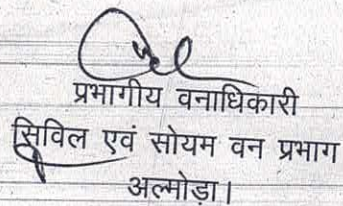 प्रभागीय वनाधिकारी
सिविल एवं सोयम वन प्रभाग
अल्मोड़ा।